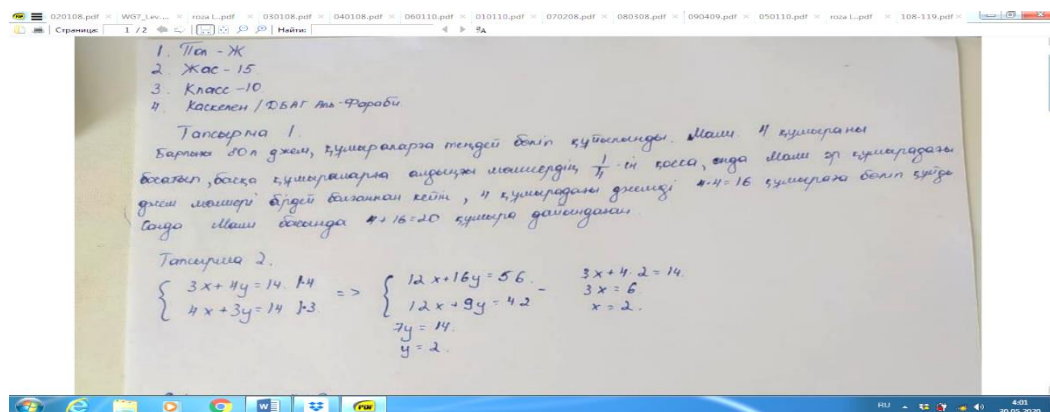 020108.pdf WG7_Lev.... roza l...pdf 030108.pdf 040108.pdf 060110.pdf 010110.pdf 070208.pdf 080308.pdf 090409.pdf 050110.pdf roza l...pdf 108-119.pdf
Страница: 1 / 2 Найти:
1. Пол - Ж
2. Жас - 15
3. Класс - 10
4. Каскелен / ДБАГ Аль-Фараби
Тапсырма 1.
Барлығы 80л джем, құмыраларға теңдей бөліп құйылынды. Мали 4 құмыраны
босатып, басқа құмыраларға алдыңғы мөлшердің 1/4-ін қосса, онда Мали әр құмырадағы
джем мөлшері бірдей болғаннан кейін, 4 құмырадағы джемді 4·4=16 құмыраға бөліп құйды
Сонда Мали басында 4+16=20 құмыра дайындаған.
Тапсырма 2.
{ 3x+4y=14. |·4 => { 12x+16y=56. - 3x+4·2=14.
4x+3y=14 |·3 12x+9y=42 3x=6.
7y=14. x=2.
y=2.
RU 4:01
20.05.2020